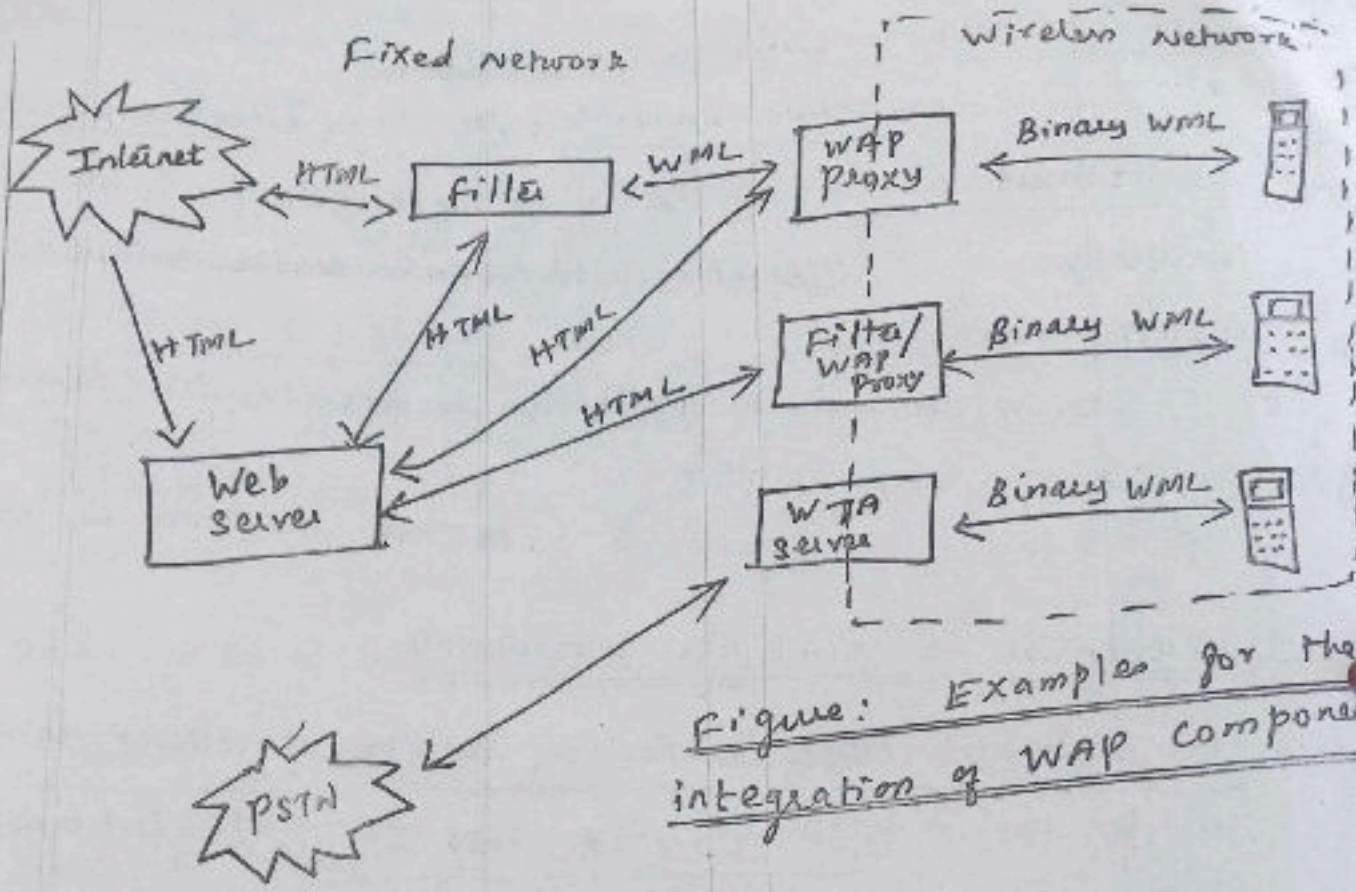 Fixed Network
Wireless Network
Internet
HTML
Filter
WML
WAP
Proxy
Binary WML
HTML
HTML
HTML
HTML
Filter/
WAP
Proxy
Binary WML
Web
Server
WTA
Server
Binary WML
PSTN
Figure: Examples for the
integration of WAP Compone